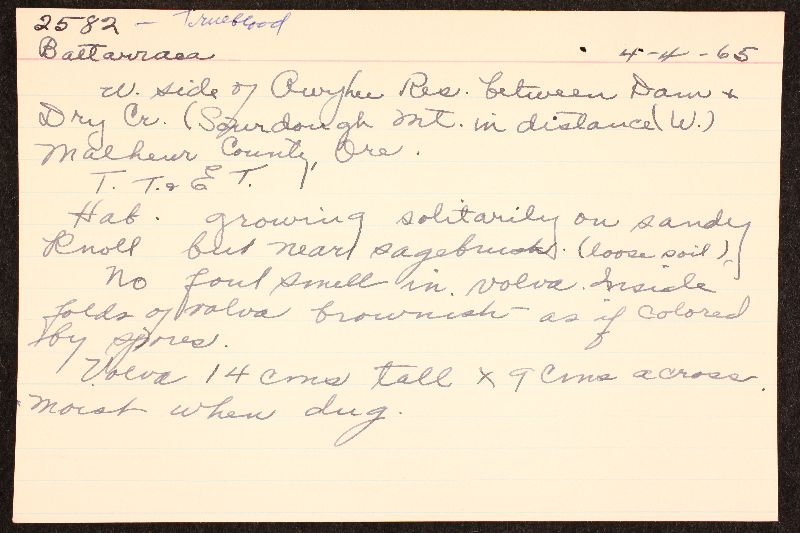 2582 – Trueblood
Battarraea 4-4-65
W. side of Owyhee Res. between Dam &
Dry Cr. (Sourdough Mt. in distance (W.)
Malheur County, Ore.
T. T. & E T.
Hab. growing solitarily on sandy
Knoll but near sagebrush. (loose soil)
No foul smell in volva. Inside
folds of volva brownish as if colored
by spores.
Volva 14 cms tall x 9 cms across.
Moist when dug.